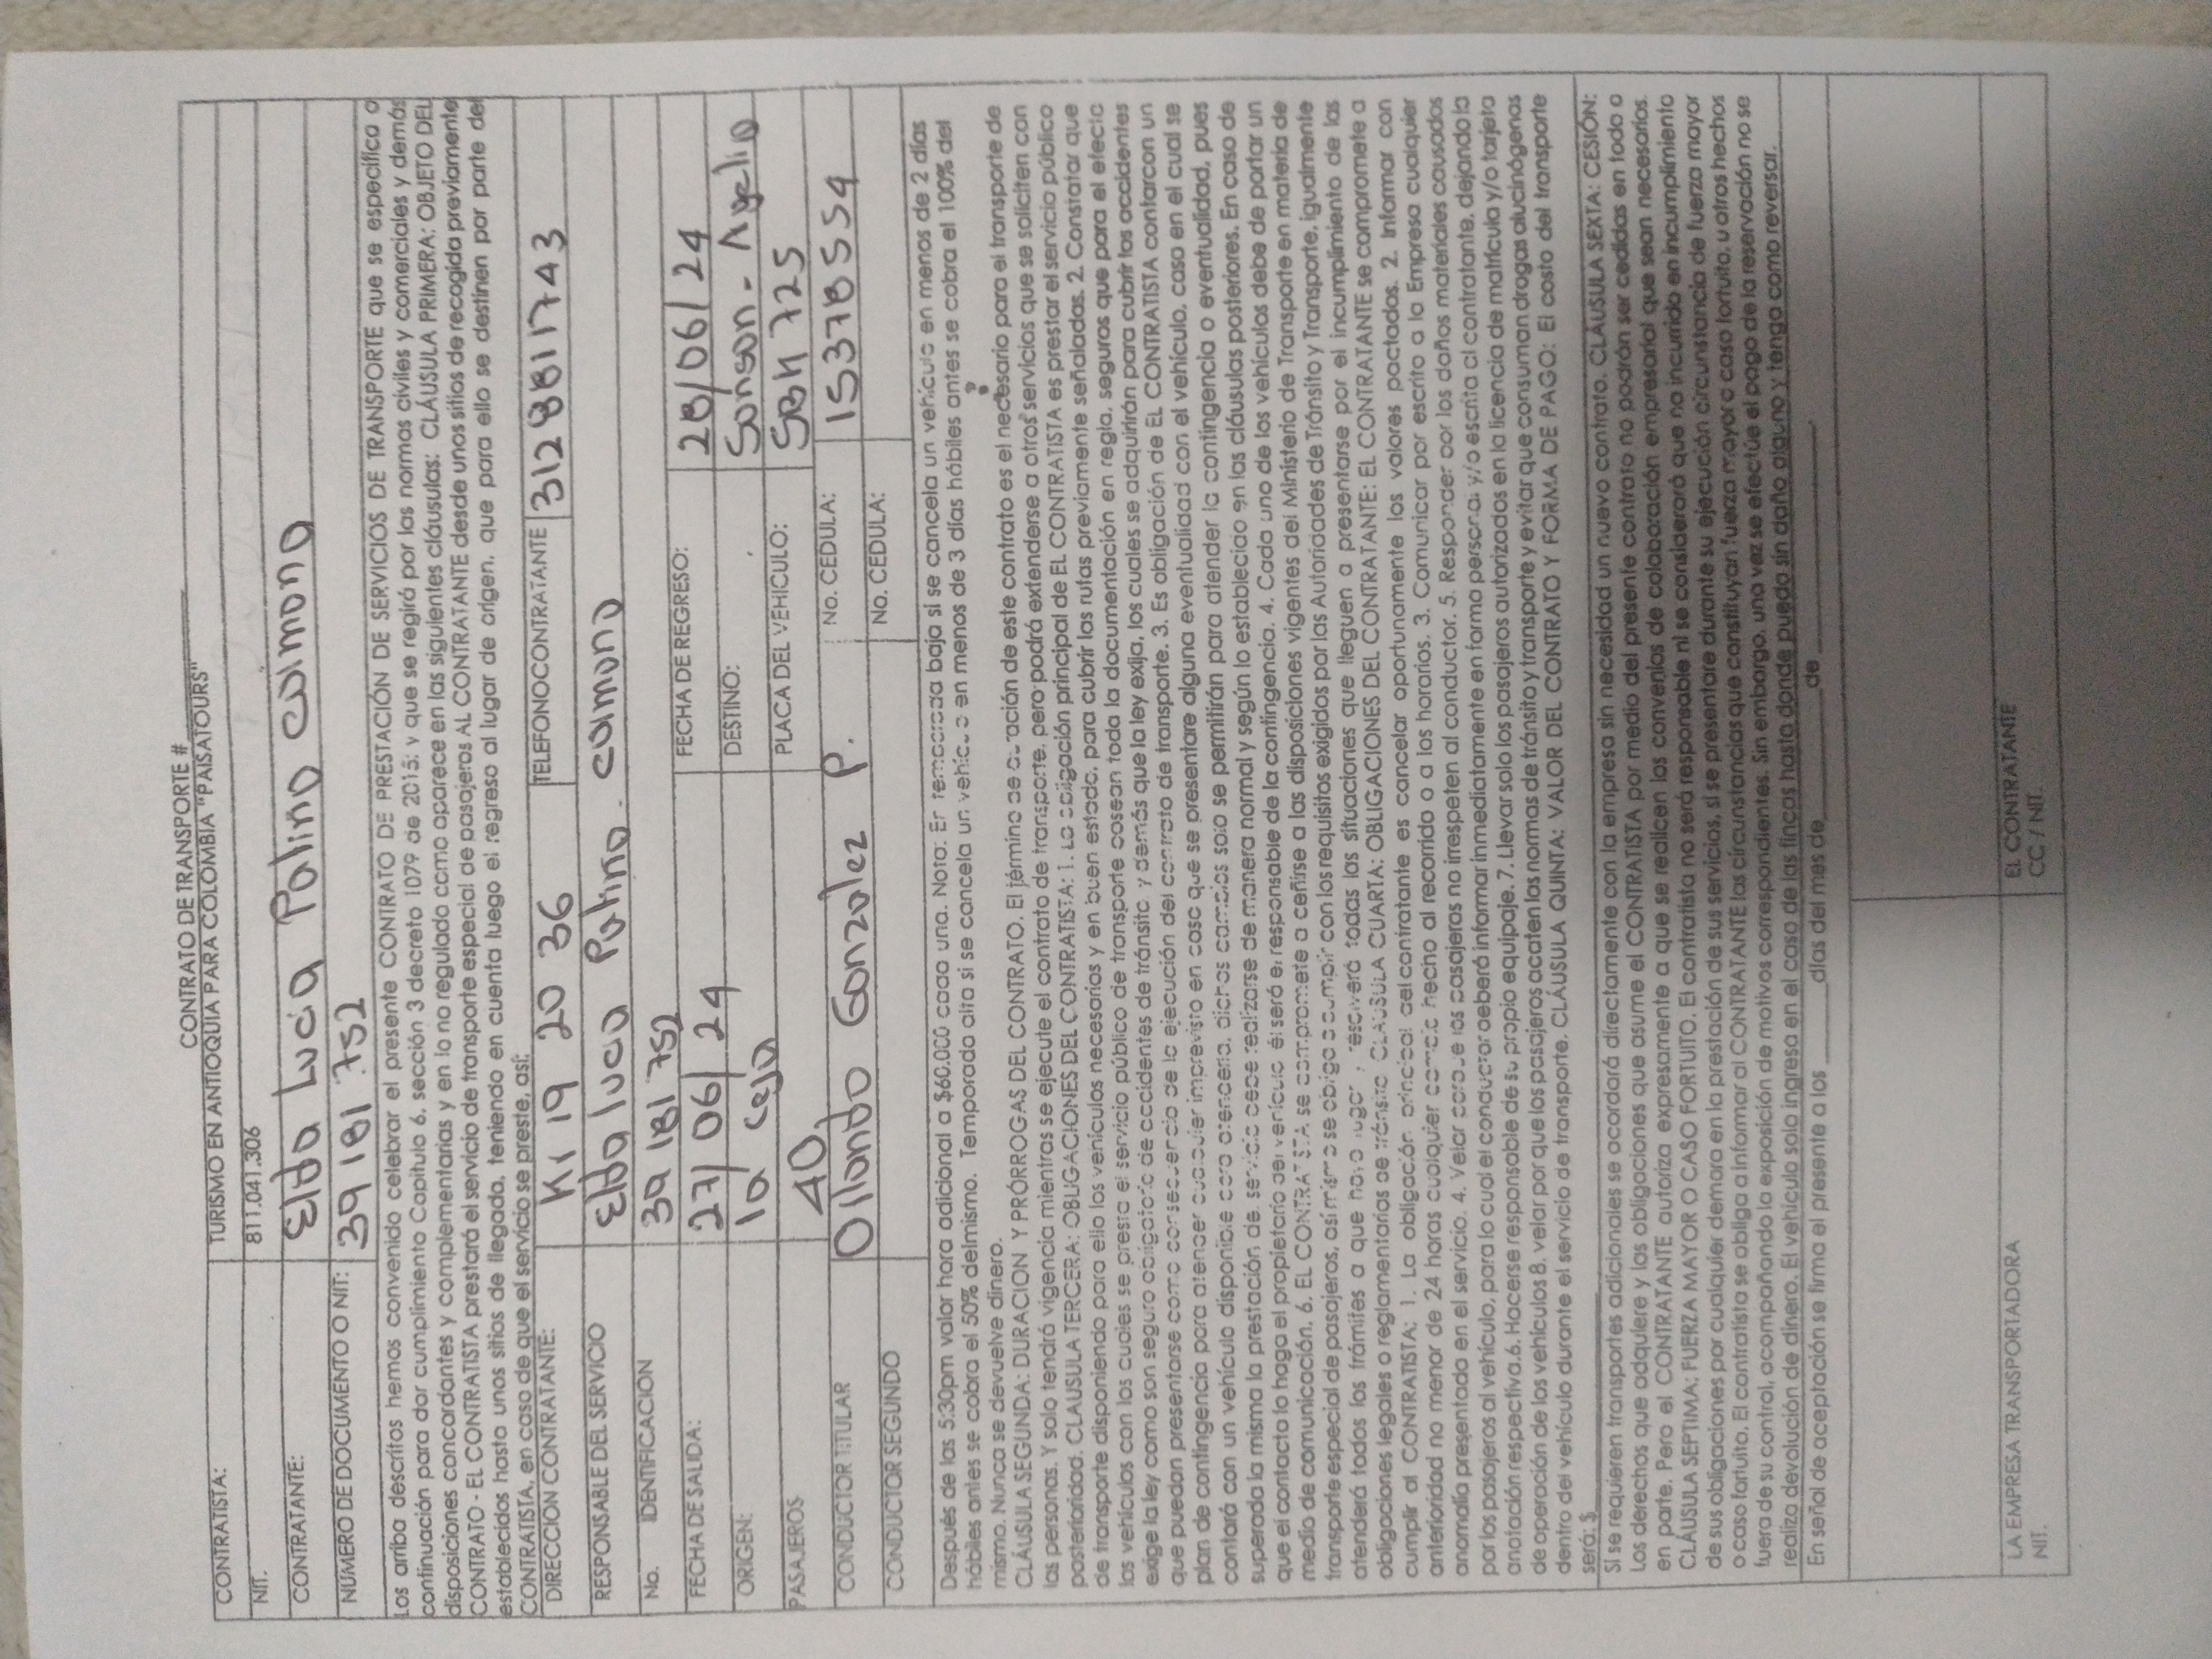 CONTRATO DE TRANSPORTE #
CONTRATISTA: TURISMO EN ANTIOQUIA PARA COLOMBIA "PAISATOURS"
NIT. 811.041.306
CONTRATANTE: Elda Lucia Patino Calmona
NUMERO DE DOCUMENTO O NIT: 39 181 752
Los arriba descritos hemos convenido celebrar el presente CONTRATO DE PRESTACIÓN DE SERVICIOS DE TRANSPORTE que se especifica a
continuación para dar cumplimiento Capitulo 6, sección 3 decreto 1079 de 2015; y que se regirá por las normas civiles y comerciales y demás
disposiciones concordantes y complementarias y en lo no regulado como aparece en las siguientes cláusulas: CLÁUSULA PRIMERA: OBJETO DEL
CONTRATO - EL CONTRATISTA prestará el servicio de transporte especial de pasajeros AL CONTRATANTE desde unos sitios de recogida previamente
establecidos hasta unos sitios de llegada, teniendo en cuenta luego el regreso al lugar de origen, que para ello se destinen por parte del
CONTRATISTA, en caso de que el servicio se preste, así:
DIRECCION CONTRATANTE: K1 19 20 36 TELEFONOCONTRATANTE 3128811743
RESPONSABLE DEL SERVICIO Elda lucia Patino. calmona
No. IDENTIFICACION 39 181 752
FECHA DE SALIDA: 27/06/24 FECHA DE REGRESO: 28/06/24
ORIGEN: la ceja DESTINO: Sonson - Argelia
PASAJEROS 40, PLACA DEL VEHICULO: SBH 725
CONDUCTOR TITULAR Ollando Gonzalez P. No. CEDULA: 15378554
CONDUCTOR SEGUNDO No. CEDULA:
Después de las 5:30pm valor hora adicional a $60.000 cada una. Nota: En temporada baja si se cancela un vehículo en menos de 2 días
hábiles antes se cobra el 50% del mismo. Temporada alta si se cancela un vehículo en menos de 3 días hábiles antes se cobra el 100% del
mismo. Nunca se devuelve dinero.
CLÁUSULA SEGUNDA: DURACION Y PRÓRROGAS DEL CONTRATO. El término de duración de este contrato es el necesario para el transporte de
las personas. Y solo tendrá vigencia mientras se ejecute el contrato de transporte, pero podrá extenderse a otros servicios que se soliciten con
posterioridad. CLAUSULA TERCERA: OBLIGACIONES DEL CONTRATISTA: 1. La obligación principal de EL CONTRATISTA es prestar el servicio público
de transporte disponiendo para ello los vehículos necesarios y en buen estado, para cubrir las rutas previamente señaladas. 2. Constatar que
los vehículos con los cuales se presta el servicio público de transporte posean toda la documentación en regla, seguros que para el efecto
exige la ley como son seguro obligatorio de accidentes de tránsito, y demás que la ley exija, los cuales se adquirirán para cubrir los accidentes
que puedan presentarse como consecuencia de la ejecución del contrato de transporte. 3. Es obligación de EL CONTRATISTA contar con un
plan de contingencia para atender cualquier imprevisto en caso que se presentare alguna eventualidad con el vehículo, caso en el cual se
contará con un vehículo disponible para atenderla, dichos cambios solo se permitirán para atender la contingencia o eventualidad, pues
superada la misma la prestación del servicio debe realizarse de manera normal y según lo establecido en las cláusulas posteriores. En caso de
que el contacto lo haga el propietario del vehículo él será el responsable de la contingencia. 4. Cada uno de los vehículos debe de portar un
medio de comunicación. 6. EL CONTRATISTA se compromete a ceñirse a las disposiciones vigentes del Ministerio de Transporte en materia de
transporte especial de pasajeros, así mismo se obliga a cumplir con los requisitos exigidos por las Autoridades de Tránsito y Transporte, igualmente
atenderá todos los trámites a que haya lugar y resolverá todas las situaciones que lleguen a presentarse por el incumplimiento de las
obligaciones legales o reglamentarias de tránsito. CLAUSULA CUARTA: OBLIGACIONES DEL CONTRATANTE: EL CONTRATANTE se compromete a
cumplir al CONTRATISTA: 1. La obligación principal del contratante es cancelar oportunamente los valores pactados. 2. Informar con
anterioridad no menor de 24 horas cualquier cambio hecho al recorrido o a los horarios. 3. Comunicar por escrito a la Empresa cualquier
anomalía presentada en el servicio. 4. Velar porque los pasajeros no irrespeten al conductor. 5. Responder por los daños materiales causados
por los pasajeros al vehículo, para lo cual el conductor deberá informar inmediatamente en forma personal y/o escrita al contratante, dejando la
anotación respectiva. 6. Hacerse responsable de su propio equipaje. 7. Llevar solo los pasajeros autorizados en la licencia de matrícula y/o tarjeta
de operación de los vehículos 8. velar por que los pasajeros acaten las normas de tránsito y transporte y evitar que consuman drogas alucinógenas
dentro del vehículo durante el servicio de transporte. CLÁUSULA QUINTA: VALOR DEL CONTRATO Y FORMA DE PAGO: El costo del transporte
será: $
Si se requieren transportes adicionales se acordará directamente con la empresa sin necesidad un nuevo contrato. CLÁUSULA SEXTA: CESIÓN:
Los derechos que adquiere y las obligaciones que asume el CONTRATISTA por medio del presente contrato no podrán ser cedidas en todo o
en parte. Pero el CONTRATANTE autoriza expresamente a que se realicen los convenios de colaboración empresarial que sean necesarios.
CLÁUSULA SEPTIMA: FUERZA MAYOR O CASO FORTUITO. El contratista no será responsable ni se considerará que ha incurrido en incumplimiento
de sus obligaciones por cualquier demora en la prestación de sus servicios, si se presentare durante su ejecución circunstancia de fuerza mayor
o caso fortuito. El contratista se obliga a informar al CONTRATANTE las circunstancias que constituyan fuerza mayor o caso fortuito, u otros hechos
fuera de su control, acompañando la exposición de motivos correspondientes. Sin embargo, una vez se efectúe el pago de la reservación no se
realiza devolución de dinero. El vehículo solo ingresa en el caso de las fincas hasta donde pueda sin daño alguno y tenga como reversar.
En señal de aceptación se firma el presente a los ______días del mes de____________de____________.
LA EMPRESA TRANSPORTADORA EL CONTRATANTE
NIT. CC / NIT.